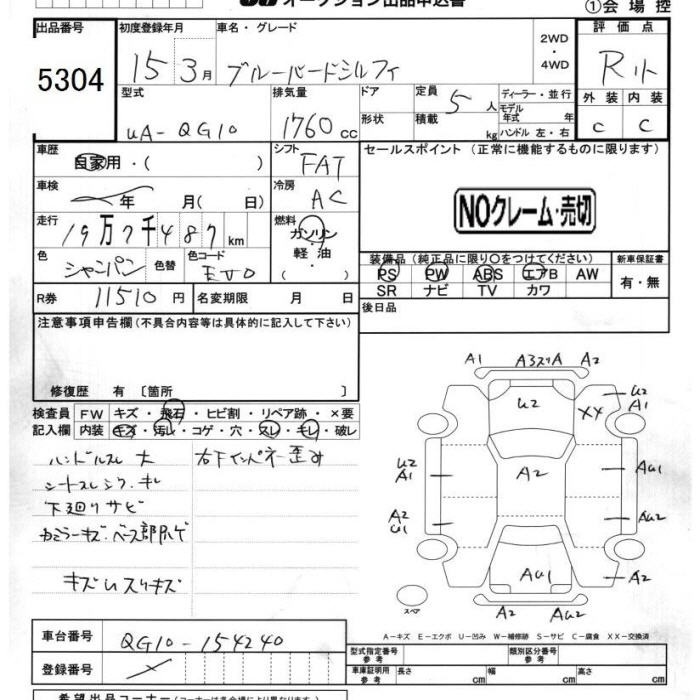 オークション出品申込書
①会場控
出品番号
5304
初度登録年月
15 3月
車名・グレード
ブルーバードシルフィ
2WD
・
4WD
評価点
R
外装 内装
C C
型式
UA-QG10
排気量
1760cc
ドア
形状
定員
5人
積載
kg
ディーラー・並行
モデル
年式 年
ハンドル 左・右
車歴
自家用・( )
シフト
FAT
車検
年 月( 日)
冷房
AC
走行
19万7千487km
燃料
ガソリン
・
軽油
( )
色
シャンパン
色替
色コード
EV0
R券 11510円
名変期限 月 日
セールスポイント(正常に機能するものに限ります)
NOクレーム・売切
装備品(純正品に限り〇をつけてください)
PS PW ABS エアB AW
SR ナビ TV カワ
新車保証書
有・無
後日品
注意事項申告欄(不具合内容等は具体的に記入して下さい)
修復歴 有〔箇所 〕
検査員 FW キズ・飛石・ヒビ割・リペア跡・×要
記入欄 内装 キズ・汚レ・コゲ・穴・スレ・キレ・破レ
ハンドルスレ大
右下インパネ歪み
シートスレシワ.キレ
下廻りサビ
ドアミラーキズ.ベース部ハゲ
キズUスリキズ
A1 A3スリA A2
U2 XX U2
A1
U2
A1
A2 AU1
A2
U1
AU2
AU1 A2
A2 AU2
スペア
A-キズ E-エクボ U-凹み W-補修跡 S-サビ C-腐食 XX-交換済
車台番号 QG10-154240
登録番号
型式指定番号
参考
類別区分番号
参考
車庫証明用
参考
長さ cm 幅 cm 高さ cm
希望出品コーナー